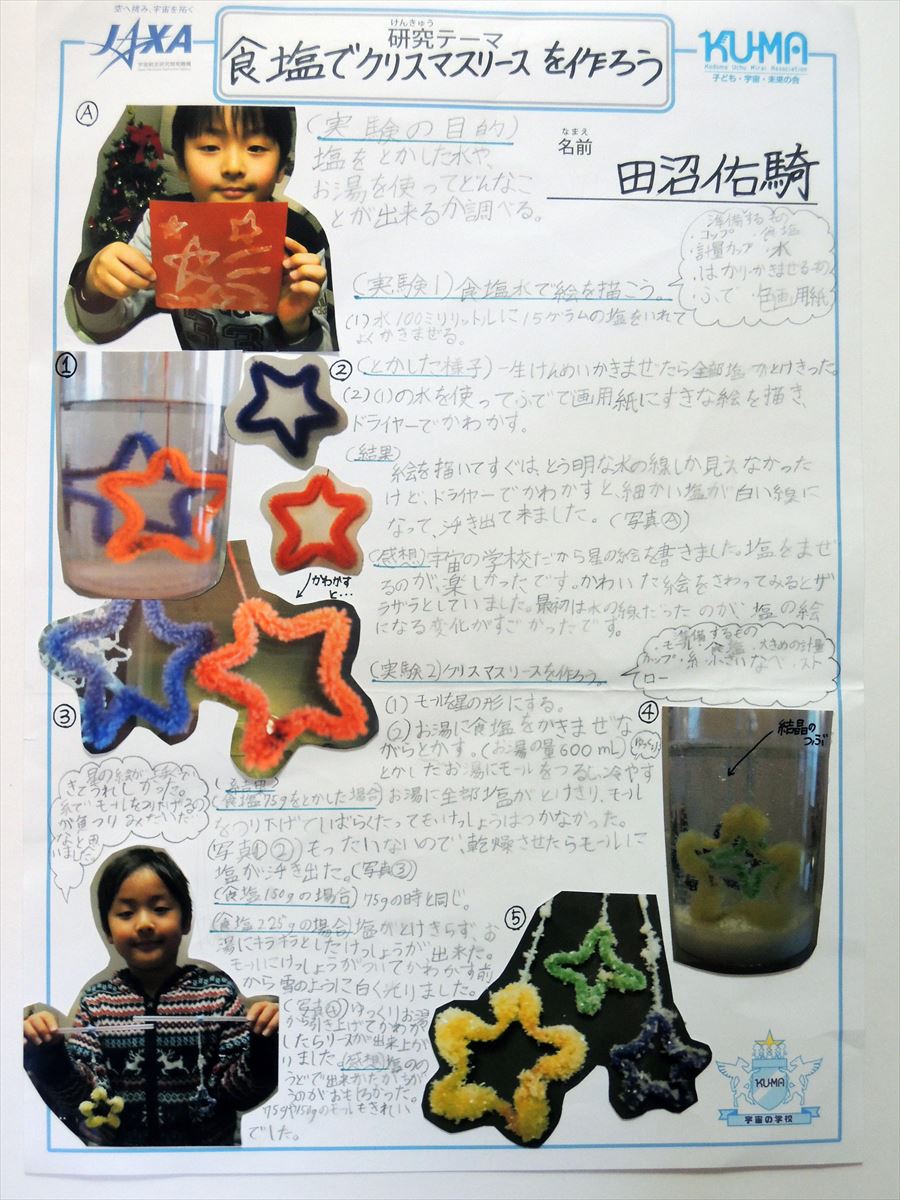 空へ挑み、宇宙を拓く
JAXA
宇宙航空研究開発機構
けんきゅう
研究テーマ
食塩でクリスマスリースを作ろう
KU-MA
Kodomo Uchu Mirai Association
子ども・宇宙・未来の会
なまえ
名前
田沼佑騎
Ⓐ
(実験の目的)
塩をとかした水や、
お湯を使ってどんなこ
とが出来るか調べる。
準備するもの
・コップ ・食塩
・計量カップ ・水
・はかり・かきまぜるもの
・ふで ・色画用紙
(実験1)食塩水で絵を描こう。
(1)水100ミリリットルに15グラムの塩をいれて
よくかきまぜる。
①
②
(とかした様子)一生けんめいかきまぜたら全部塩がとけきった。
(2)(1)の水を使ってふでで画用紙にすきな絵を描き、
ドライヤーでかわかす。
(結果)
絵を描いてすぐは、とう明な水の線しか見えなかった
けど、ドライヤーでかわかすと、細かい塩が白い線に
なって、浮き出て来ました。(写真Ⓐ)
(感想)宇宙の学校だから星の絵を書きました。塩をまぜ
るのが、楽しかったです。かわいた絵をさわってみるとザ
ラザラとしていました。最初は水の線だったのが、塩の絵
になる変化がすごかったです。
かわかすと…
準備するもの
・モール・食塩・大きめの計量
カップ・糸・小さいなべ・スト
ロー
(実験2)クリスマスリースを作ろう。
(1)モールを星の形にする。
(2)お湯に食塩をかきまぜな
がらとかす。(お湯の量600mL)
とかしたお湯にモールをつるし冷やす
ゆっくり
③
④
結晶のつぶ
(結果)
(食塩75gをとかした場合)お湯に全部塩がとけきり、モール
をつり下げてしばらくたってもけっしょうはつかなかった。
(写真①②)もったいないので、乾燥させたらモールに
塩が浮き出た。(写真③)
(食塩150gの場合)75gの時と同じ。
(食塩225gの場合)塩がとけきらず、お
湯にキラキラとしたけっしょうが、出来た。
モールにけっしょうがついてかわかす前
から雪のように白く光りました。
(写真④)ゆっくりお湯
から引き上げてかわか
したらリースが出来上が
りました。(感想)塩の
うどで出来かたがちが
うのがおもしろかった。
75gや150gのモールもきれい
でした。
星の絵が上手に
きてうれしかった。
糸でモールをつり下げるの
が魚つりみたいだ
なと思
いました。
⑤
KU-MA
宇宙の学校